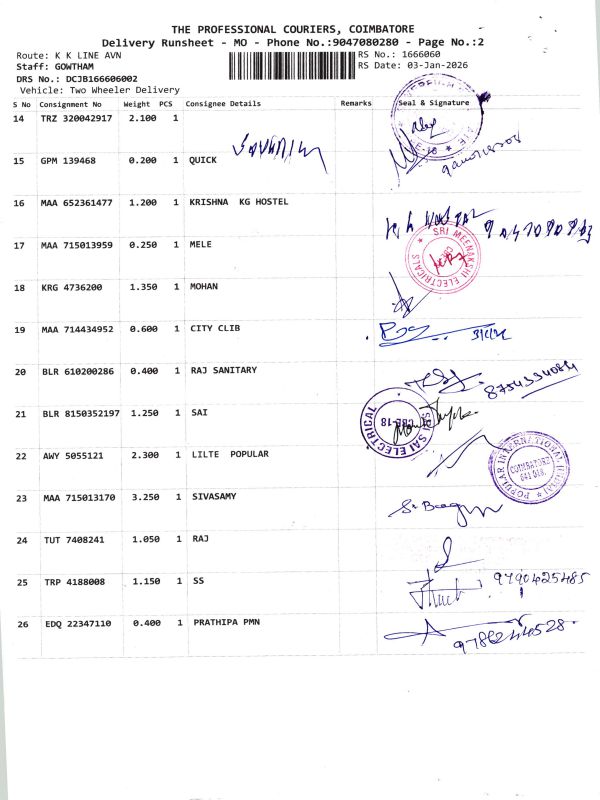 THE PROFESSIONAL COURIERS, COIMBATORE
Delivery Runsheet - MO - Phone No.:9047080280 - Page No.:2
Route: K K LINE AVN
RS No.: 1666060
Staff: GOWTHAM
RS Date: 03-Jan-2026
DRS No.: DCJB166606002
Vehicle: Two Wheeler Delivery
S No Consignment No Weight PCS Consignee Details Remarks Seal & Signature
14 TRZ 320042917 2.100 1
15 GPM 139468 0.200 1 QUICK
16 MAA 652361477 1.200 1 KRISHNA KG HOSTEL
17 MAA 715013959 0.250 1 MELE
SRI MEENAKSHI ELECTRICALS
18 KRG 4736200 1.350 1 MOHAN
19 MAA 714434952 0.600 1 CITY CLIB
20 BLR 610200286 0.400 1 RAJ SANITARY
21 BLR 8150352197 1.250 1 SAI
SRI SAI ELECTRICAL
CBE-18
22 AWY 5055121 2.300 1 LILTE POPULAR
POPULAR INTERNATIONAL
23 MAA 715013170 3.250 1 SIVASAMY
24 TUT 7408241 1.050 1 RAJ
25 TRP 4188008 1.150 1 SS
9790425485
26 EDQ 22347110 0.400 1 PRATHIPA PMN